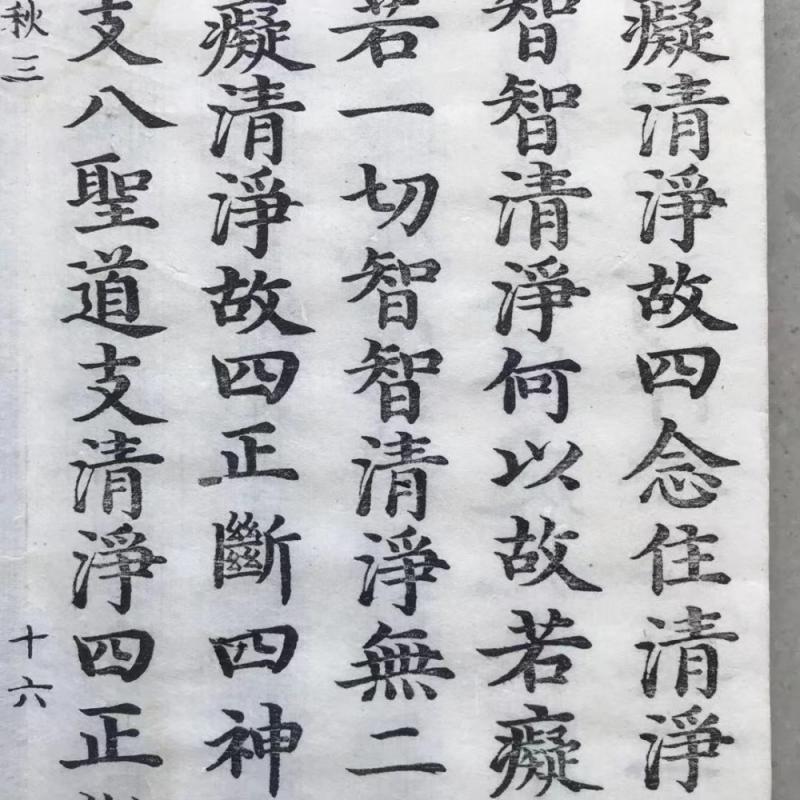 癡清淨故四念住清淨
智智清淨何以故若癡
若一切智智清淨無二
癡清淨故四正斷四神
支八聖道支清淨四正
秋三
十六